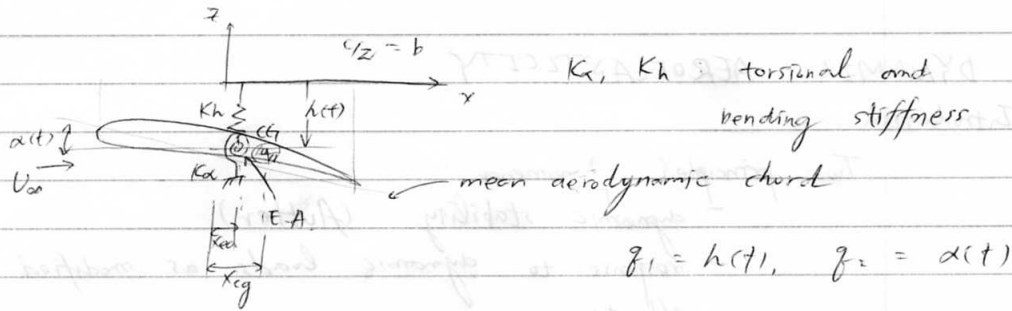 z
c/2 = b
x
Kα, Kh : torsional and
bending stiffness
Kh
h(t)
α(t)
CG
U∞
Kα
mean aerodynamic chord
E.A.
xea
xcg
q1 = h(t), q2 = α(t)